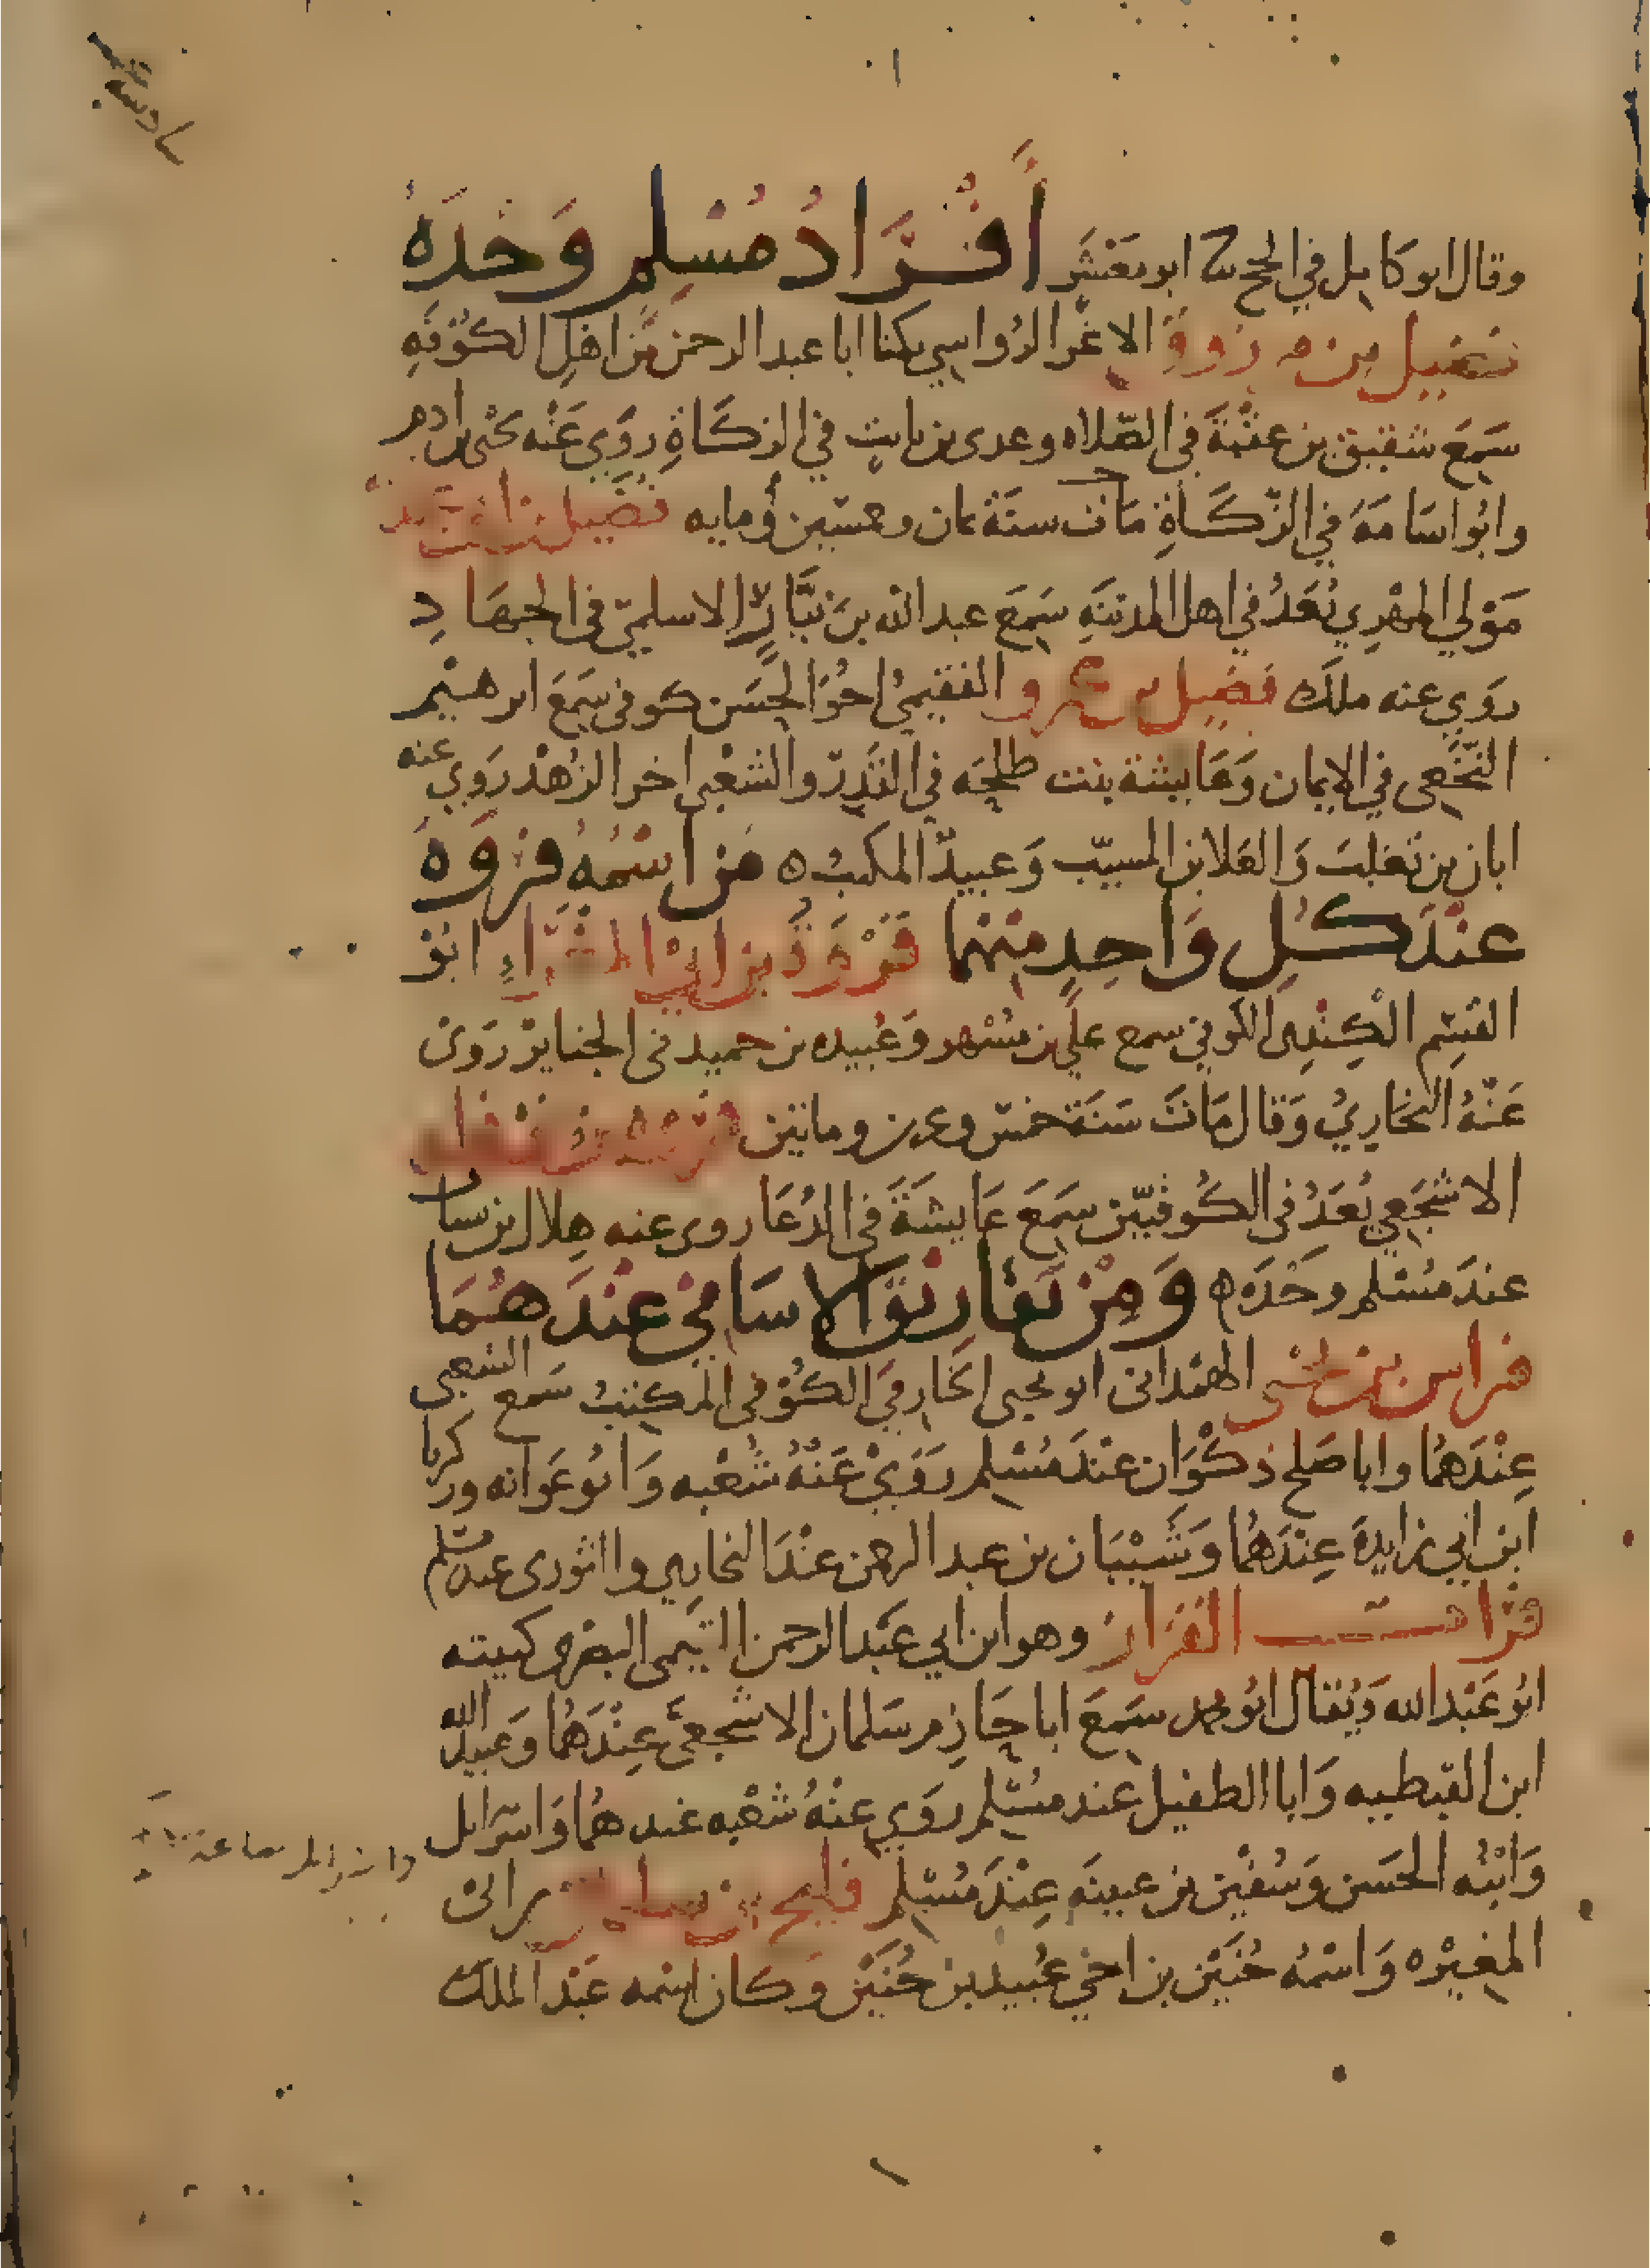 وقال ابو كامل في الحج نا ابو معشر أَفْرَادُ مُسْلِمٍ وَحْدَهُ
فضيل بن مرزوق الاغر الرُواسي يكنا ابا عبد الرحمن من اهل الكُوفَهِ
سَمِعَ شقيق بن عقبَةَ في الصّلاه وعدى بن ثابتٍ في الزكَاةِ روَي عَنْه يحيى بن ادم
وابُو اسَامَهَ في الزّكَاةِ مَات سنَة ثمان وخمسين ومايه فضيل بن ابي عبد الله
مَوْلي المهْرِي يُعَدُ في اهل المدينَهِ سَمِعَ عبد الله بنَ نيَّارٍ الاسلميّ في الجهَادِ
روَي عنه ملك فضيل بن عمرو الفقيميُ اخُو الحسَن كوفي سَمِعَ ابرهيْم
النّخَعي في الايمان وَعَايشة بنت طلحَه في القَدر والشعْبي اخر الزُهْد روَي عنه
ابان بن تغلبَ وَالعَلا بن المسيّب وَعبيدٌ المكتبُ ه مَن اسْمُهُ فَرْوَهَ
عنْدَ كُلِ وَاحِدٍ منهُما فَرْوَةُ بن ابي المغْرَاءِ ابُوْ
القسِم الكِنْدِي الكوفي سمع علي بن مُسْهر وَعَبيده بن حميد في الجنايز رَوَىْ
عَنْهُ البُخَارِيُ وَقال مَاتَ سَنَة خمسٍ وعشرين وماتين فروة بن نوفل
الاشجَعي يُعَدُ في الكُوفيّين سَمِعَ عَايشَةَ في الدُعَا روي عنه هِلال بن يساف
عندَ مُسْلم وحْدَه ه وَمِنْ تَفَاريْقِ الاسَامِي عِنْدَ هُمَا
فراس بن يحيى الهمْداني ابو يحيى الخَارِفيَ الكُوْفي المكتبُ سَمع الشعبي
عِنْدَهُمَا وابا صَلح ذكْوَان عنْدَ مُسْلم رَوَيْ عَنْهُ شُعْبه وَابُو عَوَانه وزكريا
ابن ابي زايدةَ عِنْدَهُمَا وَشَيْبَان بن عبد الرحمن عنْدَ البخاري والثوري عند مسْلم
فُرَات القزاز وهو ابن ابي عَبْد الرحمن التيمى البصْري كنيته
ابُو عَبْد الله وَيُقال ابُو محمد سَمِعَ ابا حَازِم سَلمان الاشجعيَّ عِنْدَهُمَا وَعبيد الله
ابن القبطيه وَابا الطفيل عند مُسْلم روَي عنْهُ شعْبه عندهُما وَاسْرَايل
وَابْنُه الحسَن وَسُفْين بن عيينَه عِنْدَ مُسْلمٍ فليح بن سليمن بن ابي
المغيْره وَاسْمُه حُنَيْن بن اخي عُبيد بن حُنَيْن وَكان اسْمه عَبْد الملك